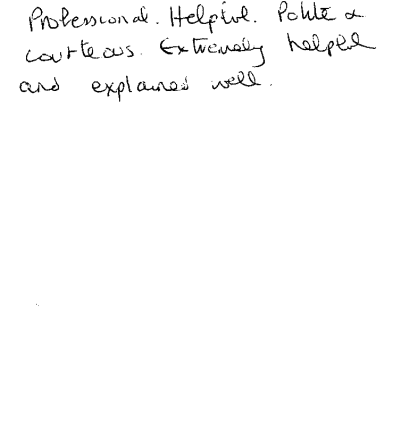 Professional. Helpful. Polite &
courteous. Extremely helpful
and explained well.